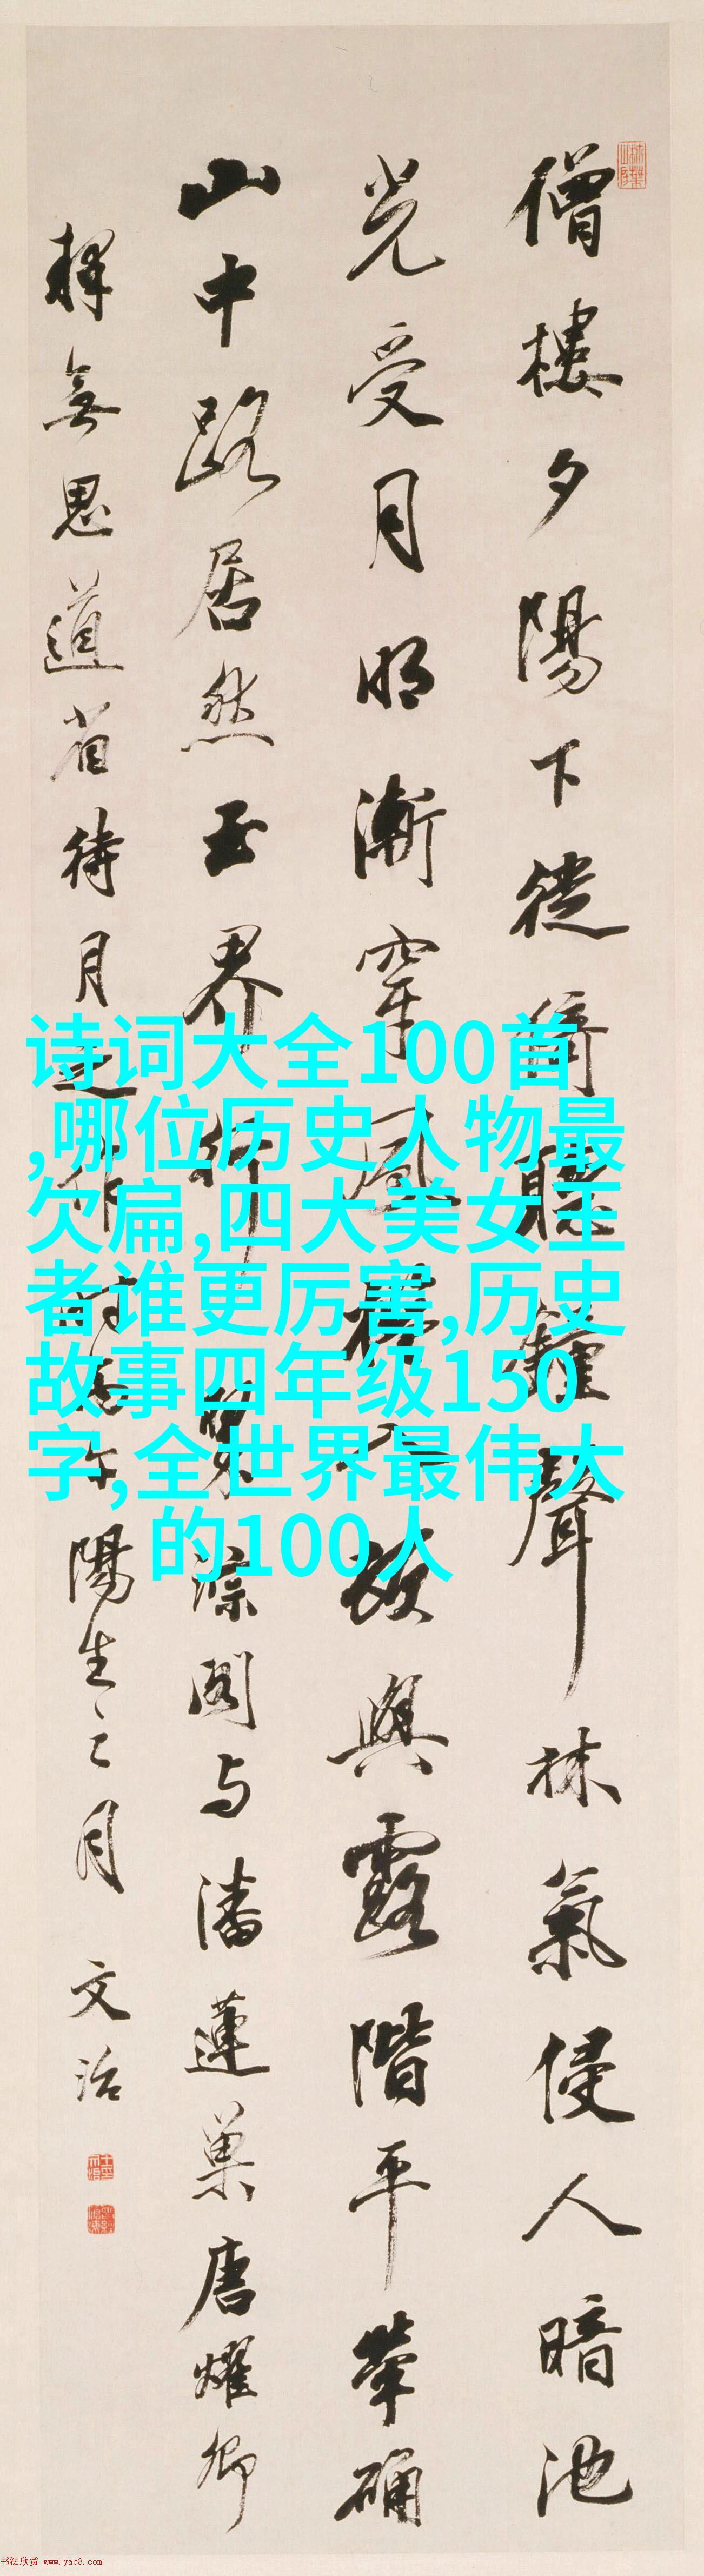 僧樓夕陽下徙倚聽鐘聲林氣侵人暗池
光受月明漸穿風
與露階平華确
山中路居然玉界行
綜閣与潘蓮巢唐耀卿
釋無思道省待月之作
陽生之月 文治
诗词大全100首
,哪位历史人物最
欠扁,四大美女王
者谁更厉害,历史
故事四年级150
字,全世界最伟大
的100人
书法欣赏 www.yac8.com